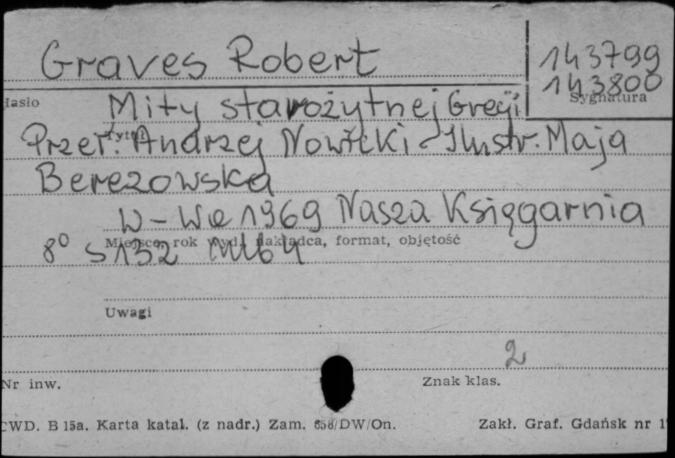 Graves Robert
143799
143800
Hasło
Sygnatura
Mity starożytnej Grecji
Tytuł
Przeł. Andrzej Nowicki - Ilustr. Maja
Berezowska
W-Wa 1969 Nasza Księgarnia
Miejsce, rok wyd., nakładca, format, objętość
8° s 132
Uwagi
2
Nr inw.
Znak klas.
CWD. B 15a. Karta katal. (z nadr.) Zam. 658/DW/On.
Zakł. Graf. Gdańsk nr 1